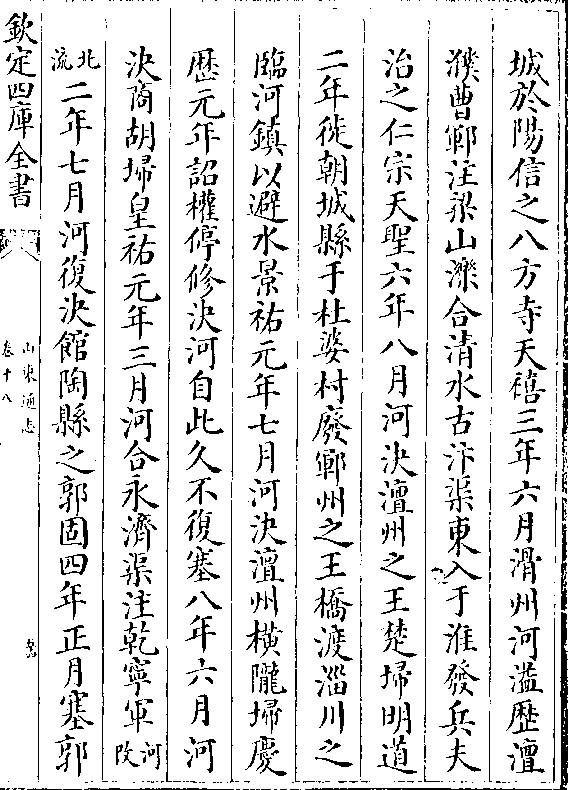 城於陽信之八方寺天禧三年六月滑州河溢歷澶
濮曹鄆注梁山濼合清水古汴渠東入于淮發兵夫
治之仁宗天聖六年八月河決澶州之王楚埽明道
二年徙朝城縣于杜婆村廢鄆州之王橋渡淄川之
臨河鎮以避水景祐元年七月河決澶州橫隴埽慶
厯元年詔權停修決河自此久不復塞八年六月河
決商胡埽皇祐元年三月河合永濟渠注乾寧軍河改
北流二年七月河復決館陶縣之郭固四年正月塞郭
欽定四庫全書
山東通志
卷十八